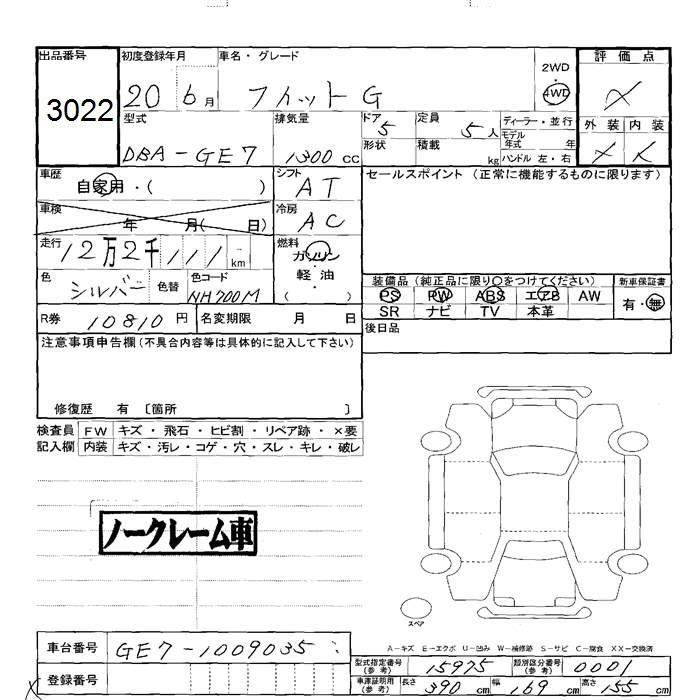 出品番号 初度登録年月 車名・グレード 評価点
3022 20 6月 フィット G 2WD 4WD
型式 排気量 ドア 5 定員 5人 ディーラー・並行 外装 内装
モデル年式 年
DBA-GE7 1300 cc 形状 積載 kg ハンドル 左・右
車歴 自家用・( ) シフト AT セールスポイント (正常に機能するものに限ります)
車検 年 月( 日) 冷房 AC
走行 12万2千111km 燃料 ガソリン・軽油 ( )
色 シルバー 色替 色コード NH700M
装備品 (純正品に限り○をつけてください) 新車保証書
PS PW ABS エアB AW 有・無
SR ナビ TV 本革
R券 10810円 名変期限 月 日
後日品
注意事項申告欄(不具合内容等は具体的に記入して下さい)
修復歴 有 〔箇所 〕
検査員 FW キズ・飛石・ヒビ割・リペア跡・×要
記入欄 内装 キズ・汚レ・コゲ・穴・スレ・キレ・破レ
ノークレーム車
スペア
A-キズ E-エクボ U-凹み W-補修跡 S-サビ C-腐食 XX-交換済
車台番号 GE7-1009035
型式指定番号(参考) 15975 類別区分番号(参考) 0001
登録番号
車庫証明用(参考) 長さ 390cm 幅 169cm 高さ 155cm